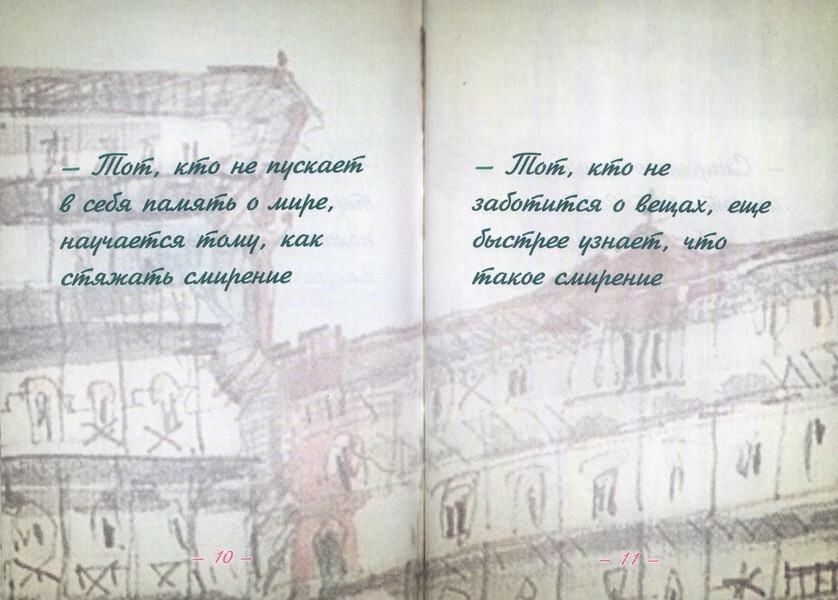 — Тот, кто не пускает
в себя память о мире,
научается тому, как
стяжать смирение
— 10 —
— Тот, кто не
заботится о вещах, еще
быстрее узнает, что
такое смирение
— 11 —